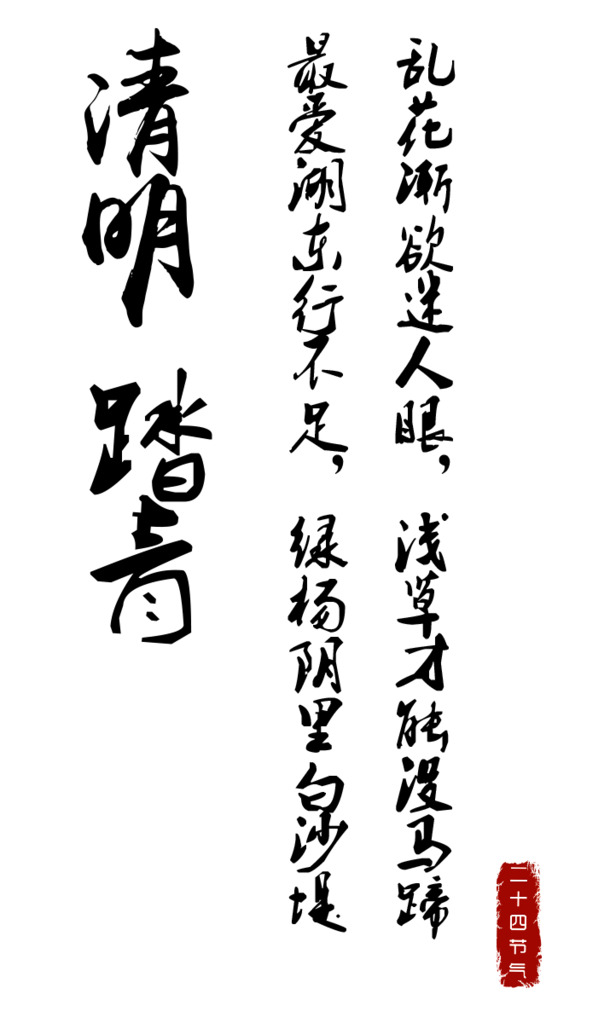 乱花渐欲迷人眼，浅草才能没马蹄
最爱湖东行不足，绿杨阴里白沙堤
清明 踏青
二十四节气